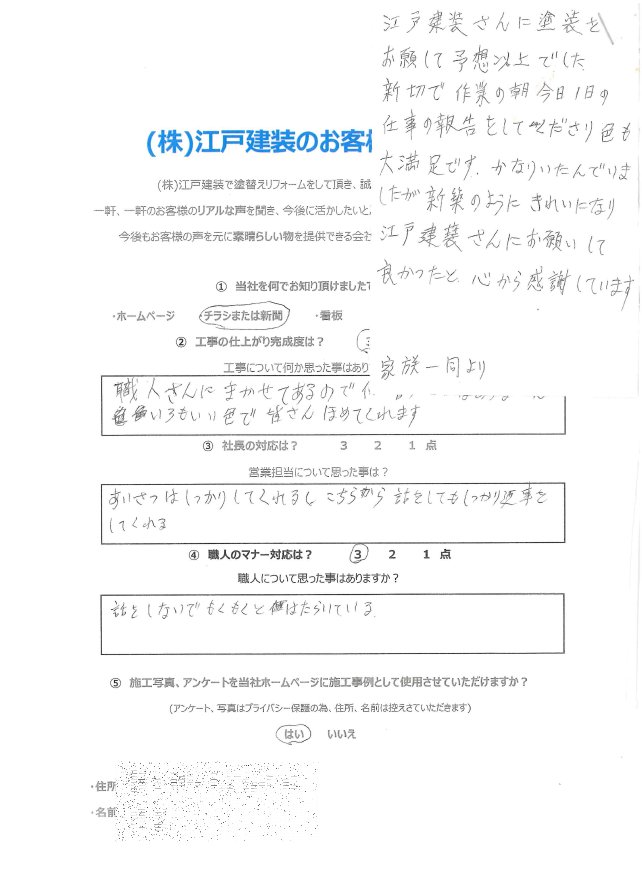 江戸建装さんに塗装を
お願して予想以上でした
新切で作業の朝今日1日の
仕事の報告をしてくださり色も
大満足です、かなりいたんでいま
したが新築のようにきれいになり
江戸建装さんにお願いして
良かったと、心から感謝しています
家族一同より
(株)江戸建装のお客様
(株)江戸建装で塗替えリフォームをして頂き、誠
一軒、一軒のお客様のリアルな声を聞き、今後に活かしたいと
今後もお客様の声を元に素晴らしい物を提供できる会社
① 当社を何でお知り頂けました
・ホームページ ・チラシまたは新聞 ・看板
② 工事の仕上がり完成度は?
工事について何か思った事はあり
職人さんにまかせてあるので
いろもいい色で皆さんほめてくれます
③ 社長の対応は? 3 2 1 点
営業担当について思った事は?
あいさつはしっかりしてくれるし、こちらから話をしてもしっかり返事を
してくれる
④ 職人のマナー対応は? 3 2 1 点
職人について思った事はありますか?
話をしないでもくもくとはたらいている
⑤ 施工写真、アンケートを当社ホームページに施工事例として使用させていただけますか?
(アンケート、写真はプライバシー保護の為、住所、名前は控えさていただきます)
はい いいえ
・住所
・名前